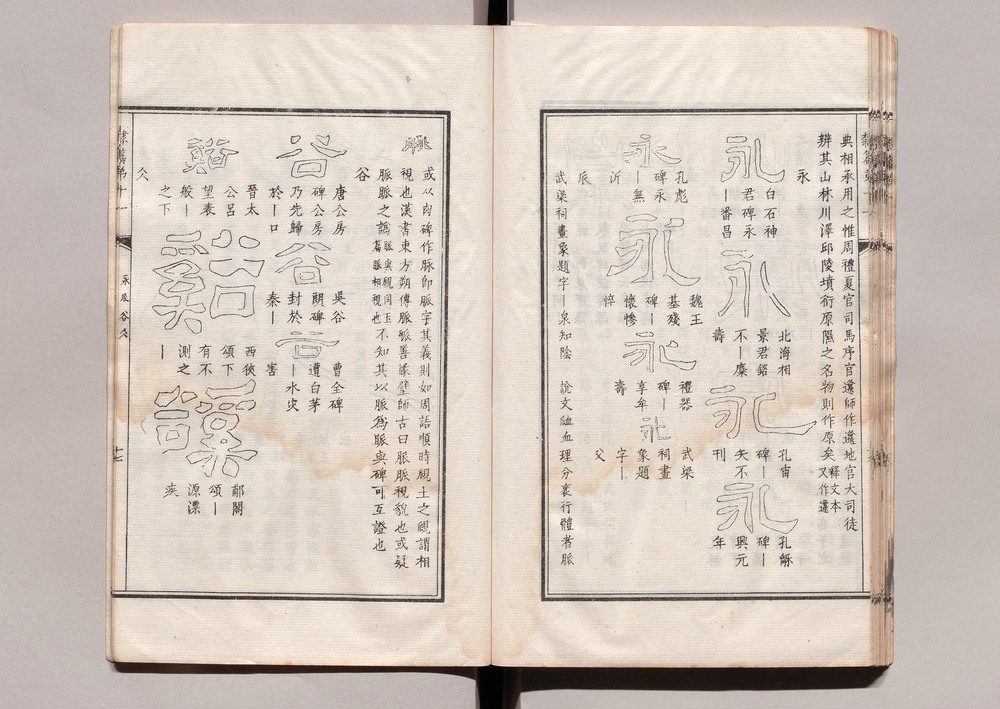 典相承用之惟周禮夏官司馬序官邍師作邍地官大司徒
辨其山林川澤邱陵墳衍原隰之名物則作原矣釋文本
又作邍
永
永
白石神
君碑永
丨番昌
永
北海相
景君銘
不丨麋
壽
永
孔宙
碑丨
矢不
刊
永
孔龢
碑丨
興元
年
永
孔彪
碑永
丨無
沂
永
魏王
基殘
碑丨
懷慘
悴
永
禮器
碑丨
享牟
壽
永
武梁
祠畫
象題
字丨
父
𠂢
武梁祠畫象題字丨泉知陰
說文血理分衺行體者脈
或以肉碑作脈卽脈字其義則如周語愼時覛土之覛謂相
視也漢書東方朔傳脈脈善緣壁師古曰脈脈視貌也或疑
脈脈之譌
脈與覛同玉
篇脈相視也
不知其以脈爲脈與碑可互證也
谷
谷
唐公房
碑公房
乃先歸
於丨口
谷
吳谷
朗碑
封於
秦丨
谷
曹全碑
遭白茅
丨水灾
害
谿
晉太
公呂
望表
般丨
之下
谿
西狹
頌下
有不
測之
丨
谿
郙閣
頌丨
源漂
疾
仌
隸篇第十一
永𠂢谷仌
十七